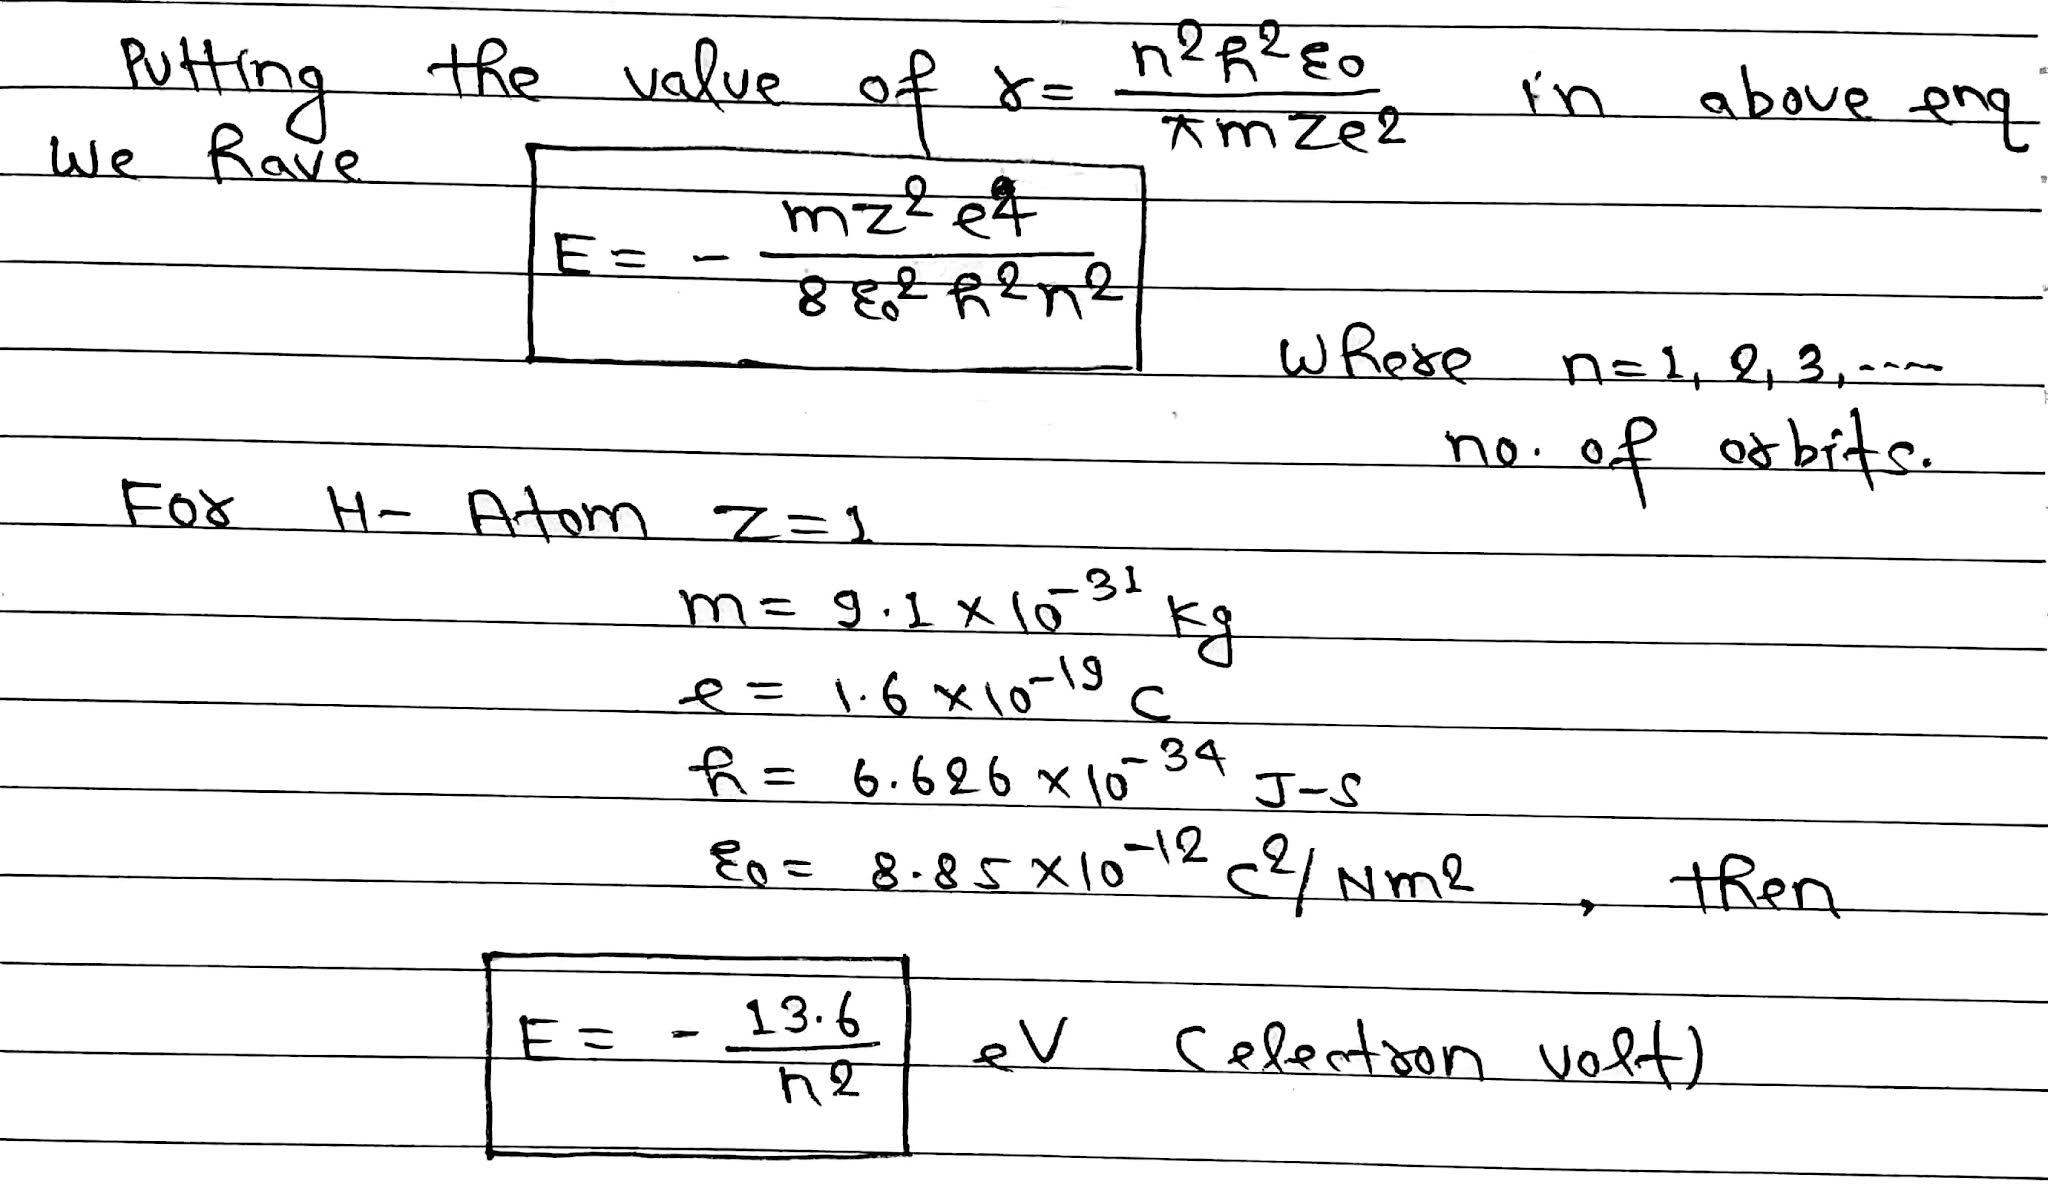 Putting the value of r = n²h²ε₀ / πmze² in above enq
we have
E = - mz²e⁴ / 8ε₀²h²n²
where n=1, 2, 3, ----
no. of orbits.
For H- Atom Z=1
m = 9.1 × 10⁻³¹ kg
e = 1.6 × 10⁻¹⁹ C
h = 6.626 × 10⁻³⁴ J-s
ε₀ = 8.85 × 10⁻¹² C²/Nm² , then
E = - 13.6 / n² eV (electron volt)